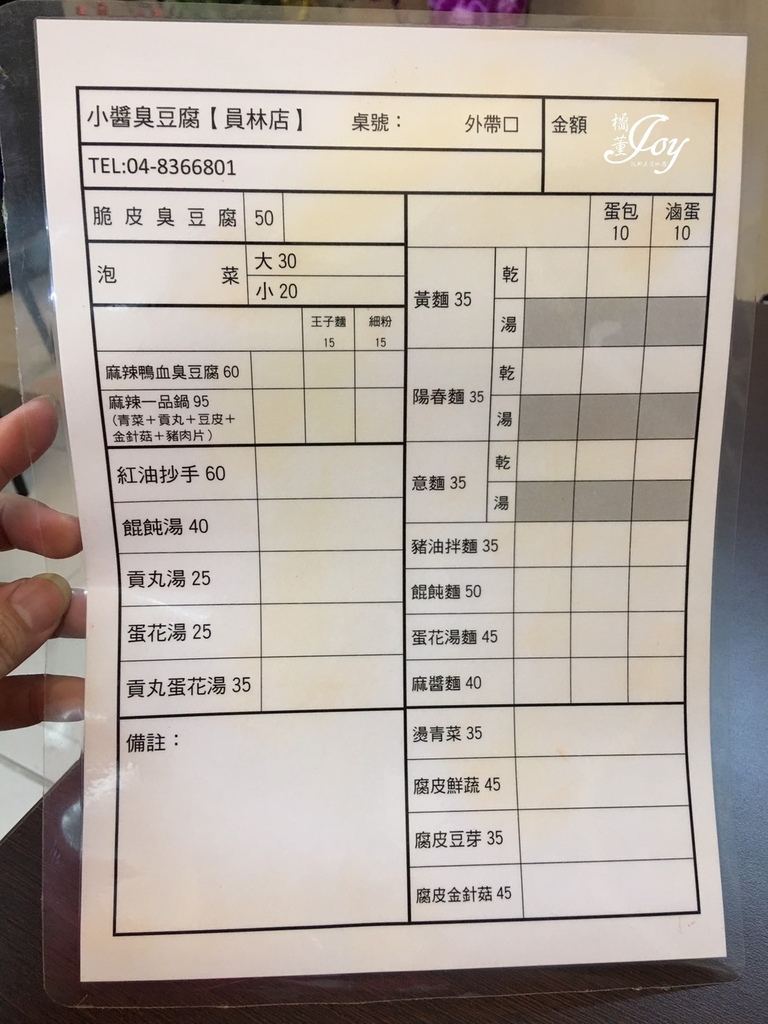 小醬臭豆腐【員林店】 桌號： 外帶口 金額
橘董Joy
TEL:04-8366801
脆皮臭豆腐 50
泡菜 大 30
小 20
王子麵 15 細粉 15
麻辣鴨血臭豆腐 60
麻辣一品鍋 95
（青菜＋貢丸＋豆皮＋
金針菇＋豬肉片）
紅油抄手 60
餛飩湯 40
貢丸湯 25
蛋花湯 25
貢丸蛋花湯 35
備註：
蛋包 10 滷蛋 10
黃麵 35 乾
湯
陽春麵 35 乾
湯
意麵 35 乾
湯
豬油拌麵 35
餛飩麵 50
蛋花湯麵 45
麻醬麵 40
燙青菜 35
腐皮鮮蔬 45
腐皮豆芽 35
腐皮金針菇 45